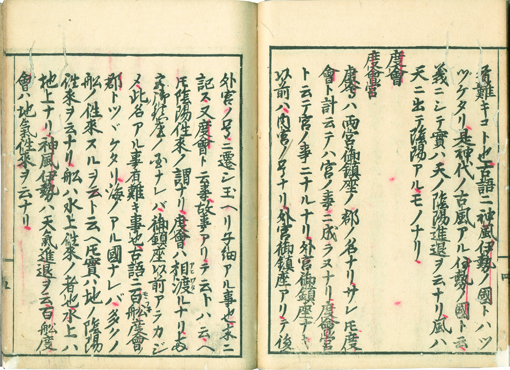 有難キコト也古語ニ神風伊勢ノ國トハツ
ツケタリ是神代ノ古風アル伊勢ノ國ト云
義ニシテ實ハ天ノ陰陽進退ヲ云ナリ風ハ
天ニ出テ陰陽アルモノナリ
度會
度會宮
度會ハ兩宮御鎮座ノ郡ノ名ナリサレ𪜈度
會ト計云テハ宮ノ事ニ成ラスナリ度會宮
ト云テ宮ノ事ニナルナリ外宮御鎮座ナキ
以前ハ内宮ノ号ナリ外宮御鎮座アリテ後
外宮ノ号ニ遷シ玉ヘリ子細アル事也永ニ
記ス又度會ト云事故事アリテ云トハ云ヘ
𪜈陰陽往來ノ謂ナリ度會ハ相渡ルナリ
御鎮座以前アラカジ
メ此名アル事有難キ事也古語ニ百舩度會
郡トツヾケタリ海ノアル國ナレバ多クノ
舩ノ往來スルヲ云ト云ヘ𪜈實ハ地ノ陰陽
往來ヲ云ナリ舩ハ水上往來ノ者也水上ハ
地上ナリ神風伊勢ハ天氣進退ヲ云百舩度
會ハ地氣往來ヲ云ナリ